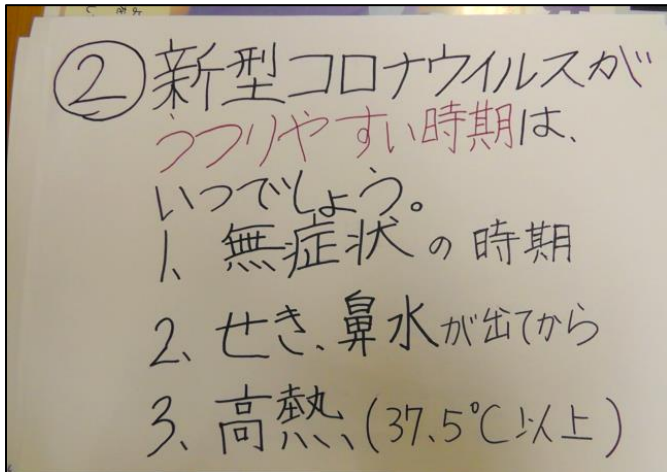 ②新型コロナウイルスが
うつりやすい時期は、
いつでしょう。
1、無症状の時期
2、せき、鼻水が出てから
3、高熱、(37.5℃以上)